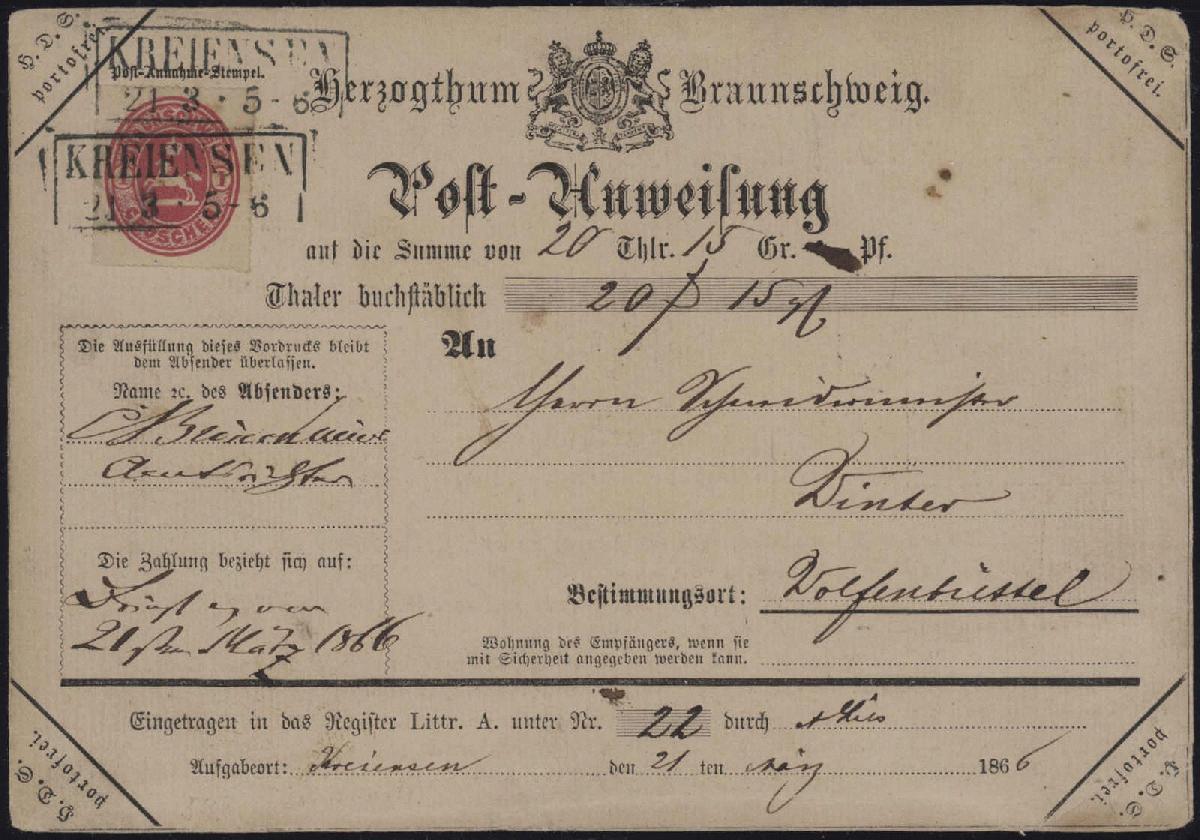 H. D. S. portofrei.
H. D. S. portofrei.
KREIENSEN
Post-Annahme-Stempel.
21 3 · 5-6
Herzogthum Braunschweig.
KREIENSEN
21 3 · 5-6
Post-Anweisung
auf die Summe von 20 Thlr. 15 Gr. Pf.
Thaler buchstäblich 20 15
Die Ausfüllung dieses Vordrucks bleibt
dem Absender überlassen.
Name ꝛc. des Absenders:
An
Herrn Schneidermeister
Winter
Die Zahlung bezieht sich auf:
21sten März 1866
Bestimmungsort: Wolfenbüttel
Wohnung des Empfängers, wenn sie
mit Sicherheit angegeben werden kann.
Eingetragen in das Register Littr. A. unter Nr. 22 durch
Aufgabeort: Kreiensen den 21 ten März 1866
H. D. S. portofrei.
H. D. S. portofrei.